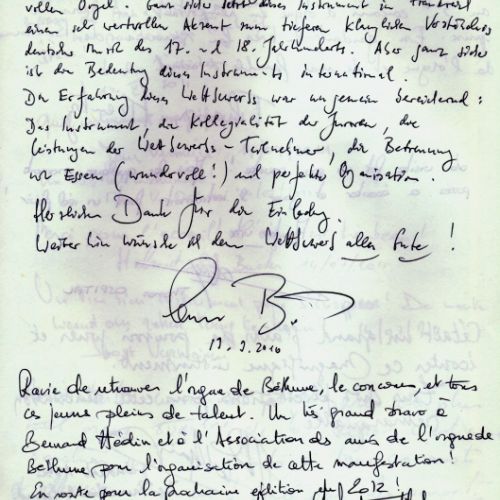 vollen Orgel. Ganz sicher setzt dieses Instrument in Frankreich
einen sehr wertvollen Akzent zum tieferen klanglichen Verständnis
deutscher Musik des 17. und 18. Jahrhunderts. Aber ganz sicher
ist die Bedeutung dieses Instruments international.
Die Erfahrung dieses Wettbewerbs war ungemein bereichernd:
Das Instrument, die Kollegialität der Juroren, die
Leistungen der Wettbewerbs-Teilnehmer, die Betreuung
von Essen (wundervoll!) und perfekte Organisation.
Herzlichen Dank für die Einladung.
Weiterhin wünsche ich dem Wettbewerb alles Gute!
Ravie de retrouver l'orgue de Béthune, le concours, et tous
ces jeunes pleins de talent. Un très grand bravo à
Bernard Hédin et à l'Association des amis de l'orgue de
Béthune pour l'organisation de cette manifestation!
En route pour la prochaine édition en 2012!